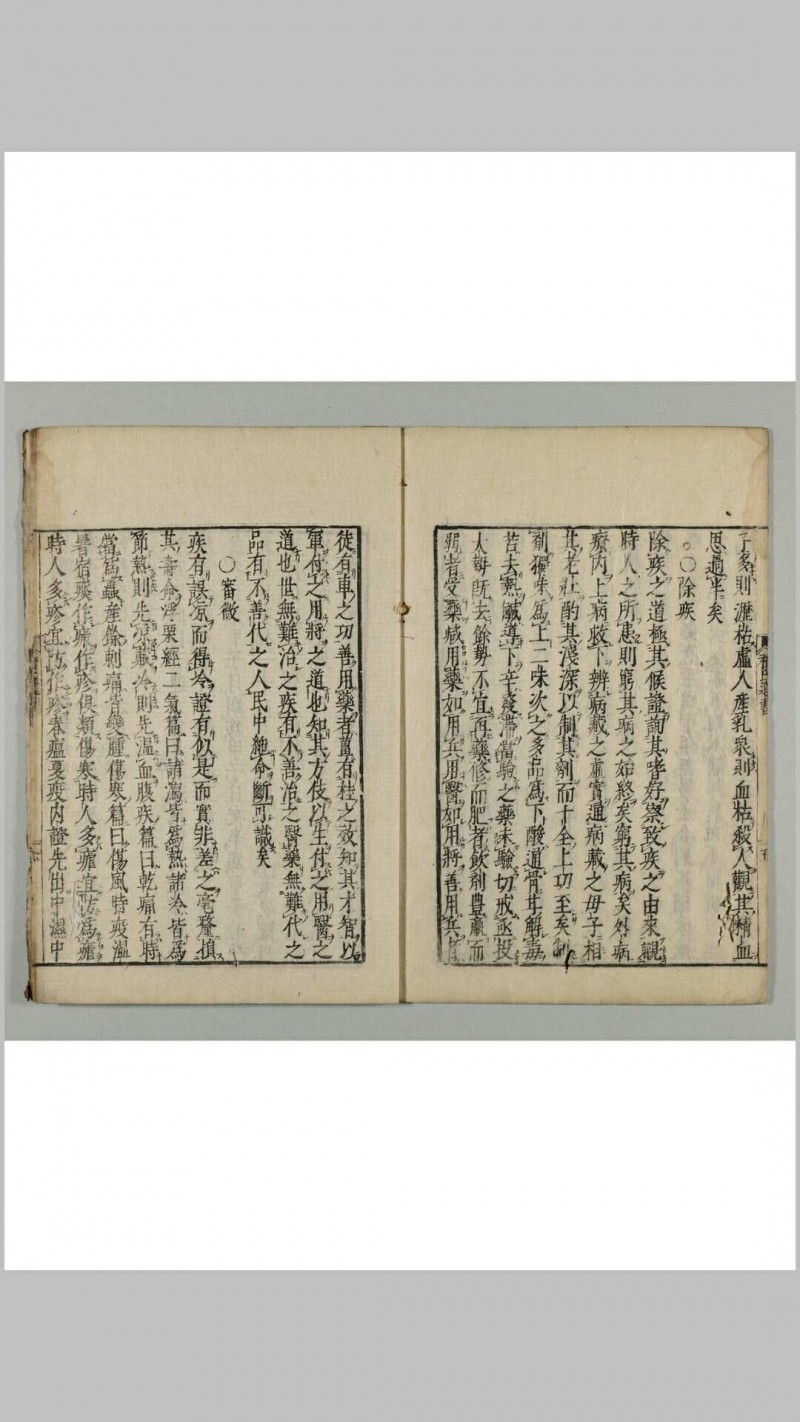 子多則瀝枯虛人產乳眾則血枯殺人觀其精血
思過半矣
○除疾
除疾之道極其候證詢其嗜好察致疾之由來觀
時人之所患則窮其病之始終矣窮其病矣外病
療内上病救下辨病藏之虛實通病藏之母子相
其老壯酌其淺深以制其劑而十全上功至矣制
劑獨味為上二味次之多品為下酸通骨甘解毒
苦去熱鹹導下辛發滯當驗之藥未驗切戒亟投
大毒既去餘勢不宜再藥修而肥者飲劑豊羸而
弱者受藥減用藥如用兵用醫如用將善用兵者
徒有車之功善用藥者薑有桂之效知其才智以
軍付之用將之道也知其方伎以生付之用醫之
道也世無難治之疾有不善治之醫藥無難代之
品有不善代之人民中絶命斷可識矣
○審微
疾有誤涼而得冷證有似是而實非差之毫釐損
其壽命浮栗經二氣篇曰諸瀉皆為熱諸冷皆為
節熱則先涼藏冷則先溫血腹疾篇曰乾痛有時
當為蟲產餘刺痛皆變腫傷寒篇曰傷風時疫溫
暑宿痰作瘧作疹俱類傷寒時人多瘧宜防為瘧
時人多疹宜防作疹春瘟夏疫内證先出中濕中